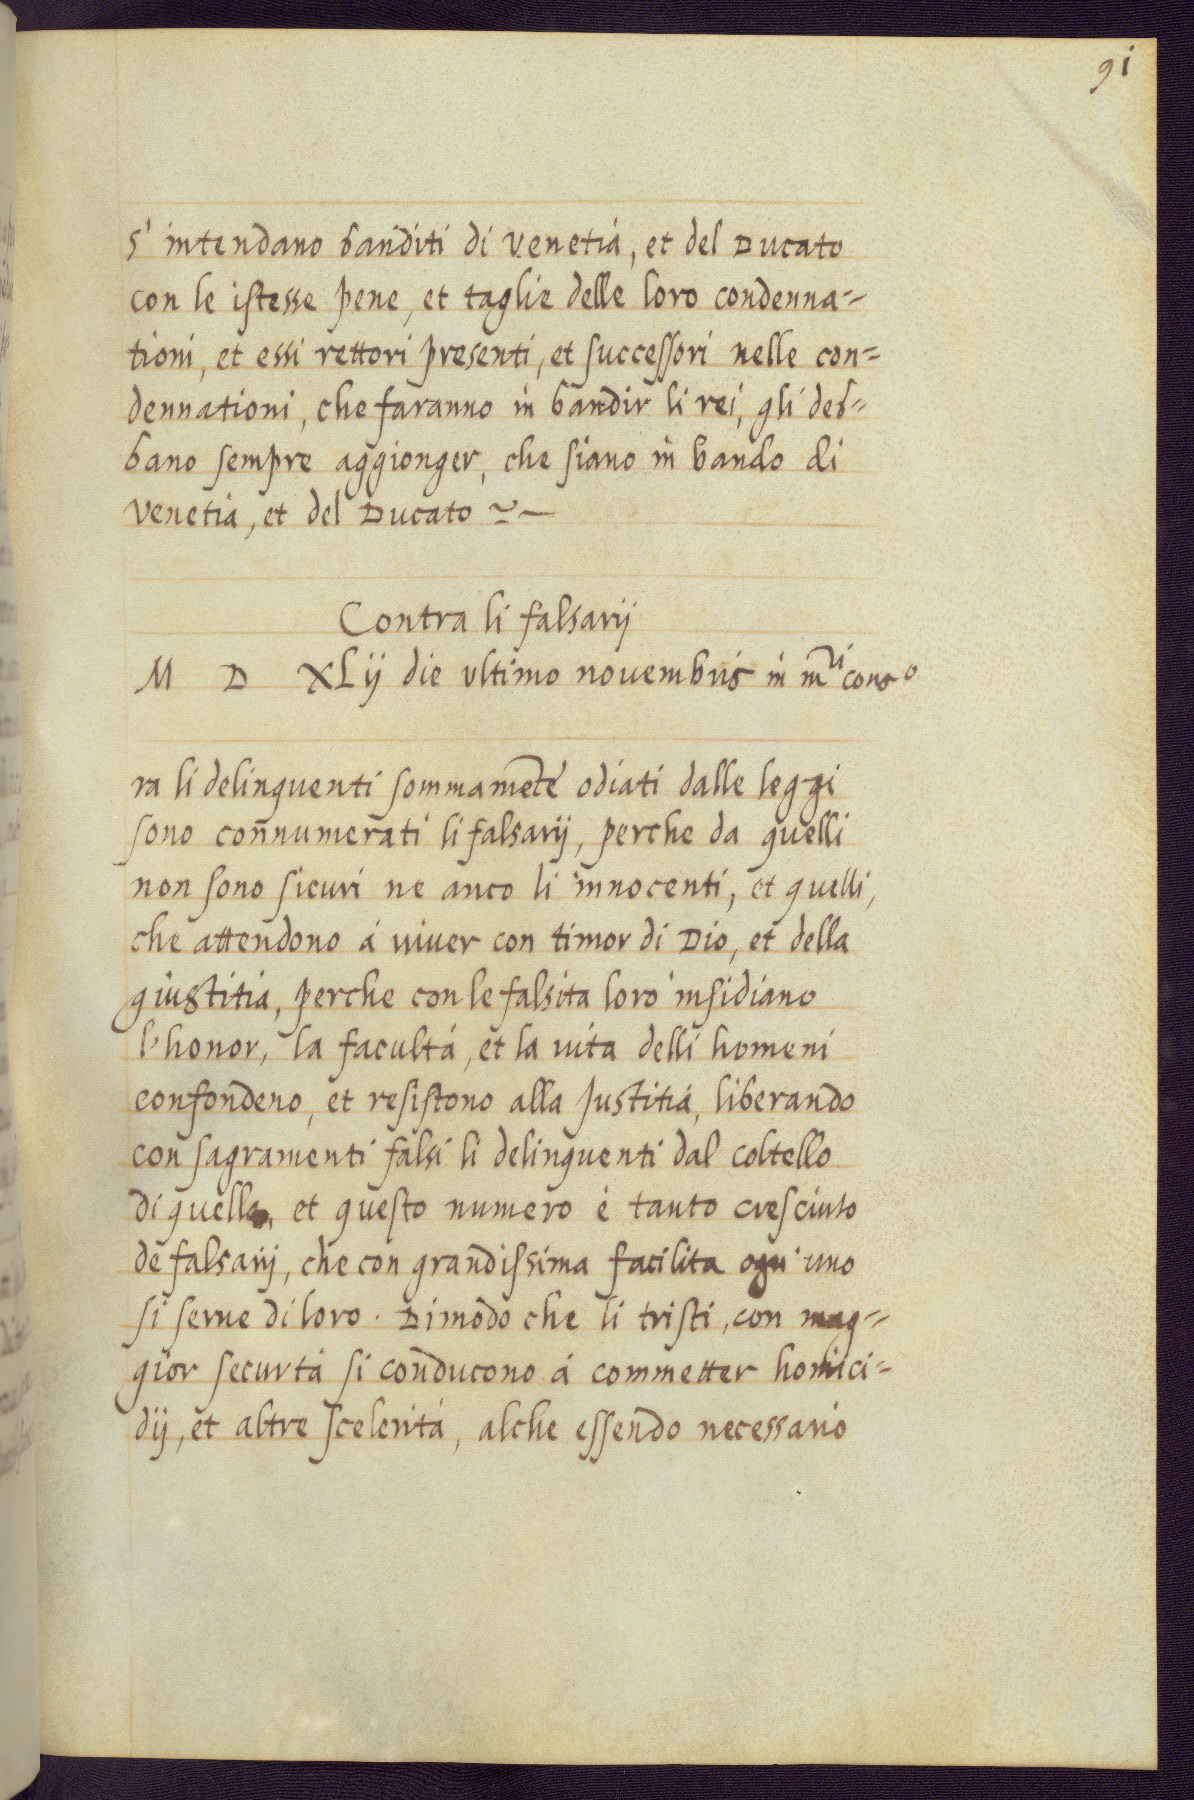 91
s' intendano banditi di Venetia, et del Ducato
con le istesse pene, et taglie delle loro condenna=
tioni, et essi rettori presenti, et successori nelle con=
dennationi, che faranno in bandir li rei, gli deb=
bano sempre aggionger, che siano in bando di
Venetia, et del Ducato
Contra li falsarij
M D XLij die ultimo novembris in mri cons o
ra li delinquenti sommamēte odiati dalle leggi
sono connumerati li falsarij, perche da quelli
non sono sicuri ne anco li innocenti, et quelli,
che attendono á viver con timor di Dio, et della
giustitia, perche con le falsita loro insidiano
l'honor, la facultá, et la vita delli homeni
confondeno, et resistono alla Justitiá, liberando
con sagramenti falsi li delinquenti dal coltello
di quella, et questo numero é tanto cresciuto
de falsarij, che con grandissima facilita ogn'uno
si serve di loro. Di modo che li tristi, con mag=
gior securtá si conducono á commetter homici=
dij, et altre sceleritá, alche essendo necessario